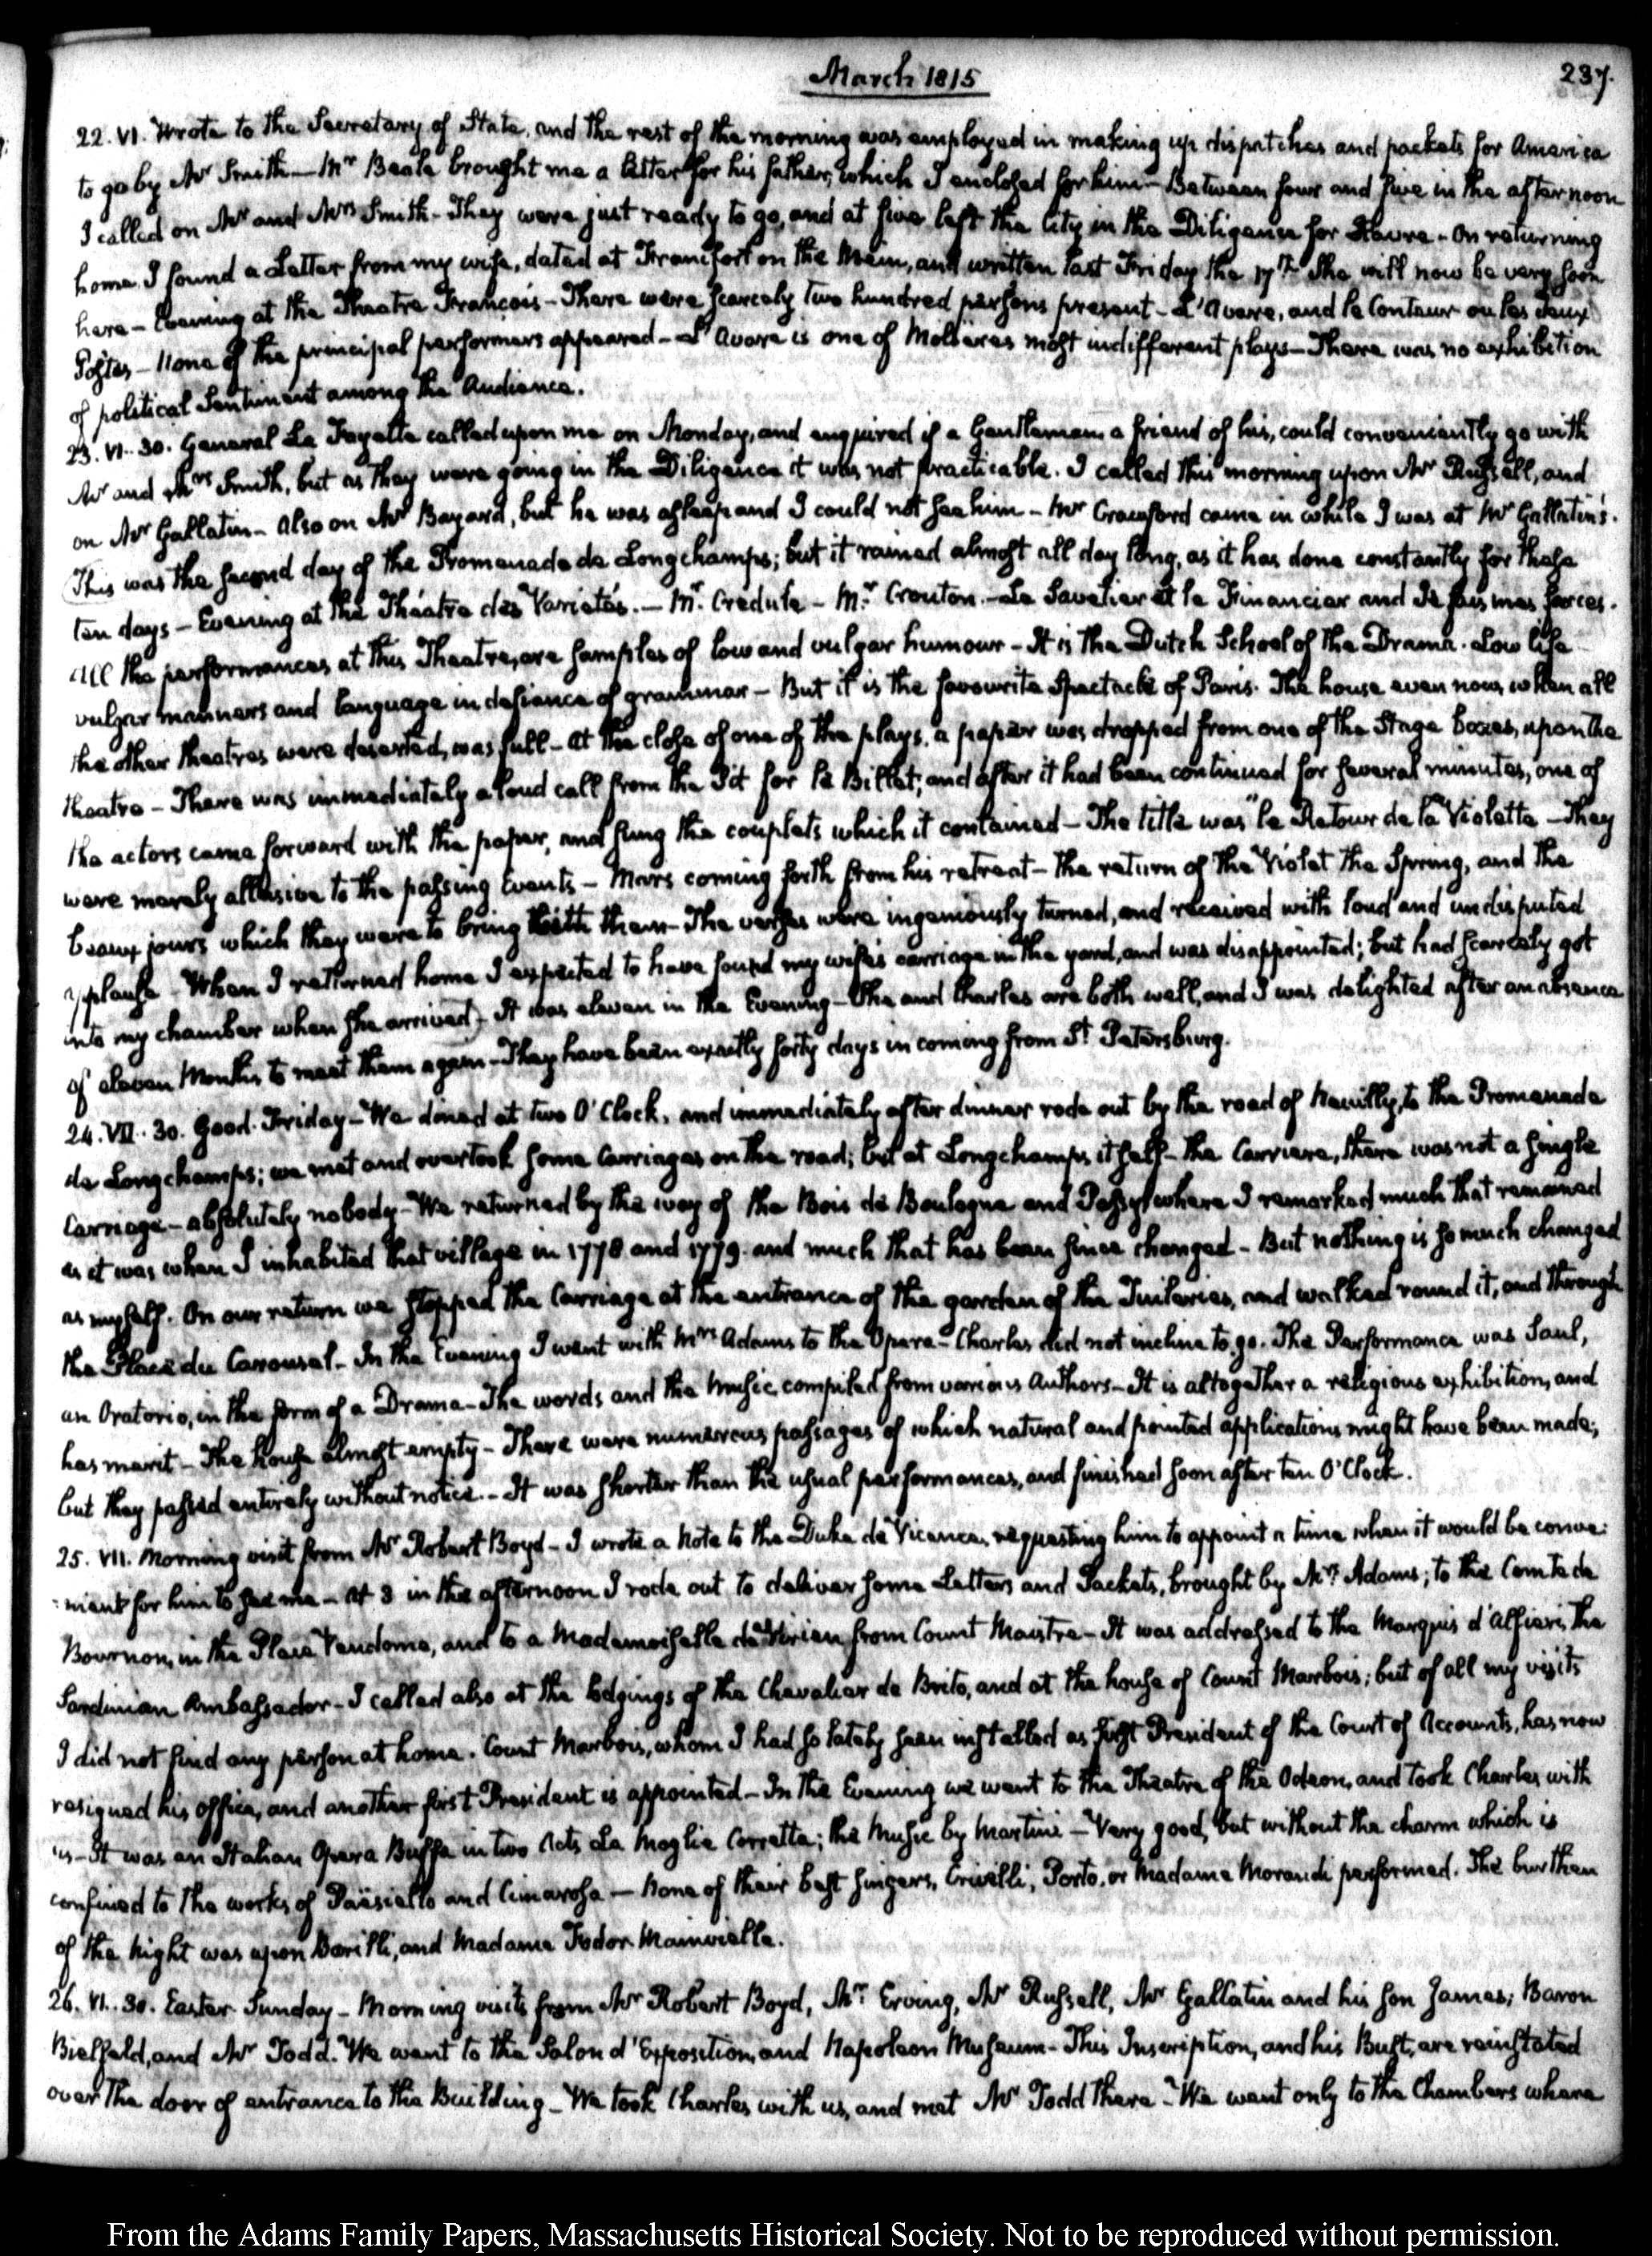 March 1815
237.
22. VI. Wrote to the Secretary of State, and the rest of the morning was employed in making up dispatches and packets for America
to go by Mr Smith — Mr Beale brought me a letter for his father, which I enclosed for him — Between four and five in the afternoon
I called on Mr and Mrs Smith. They were just ready to go, and at five left the City in the Diligence for Havre. On returning
home I found a Letter from my wife, dated at Francfort on the Mein, and written last Friday the 17th She will now be very soon
here — Evening at the Theatre Francois — There were scarcely two hundred persons present — L'Avare, and le Conteur ou les deux
Postes — None of the principal performers appeared — L'Avare is one of Molieres most indifferent plays — There was no exhibition
of political Sentiment among the Audience.
23. VI. 30. General La Fayette called upon me on Monday, and enquired if a Gentleman, a friend of his, could conveniently go with
Mr and Mrs Smith, but as they were going in the Diligence it was not practicable. I called this morning upon Mr Russell, and
on Mr Gallatin — Also on Mr Bayard, but he was asleep and I could not see him — Mr Crawford came in while I was at Mr Gallatin's.
This was the second day of the Promenade de Longchamps; but it rained almost all day long, as it has done constantly for these
ten days — Evening at the Théatre des Varietés. — Mr. Credule — Mr. Crouton — Le Savetier et le Financier and Je fais mes farces.
All the performances at this Theatre, are samples of low and vulgar humour — It is the Dutch School of the Drama. Low life
vulgar manners and language in defiance of grammar — But it is the favourite Spectacle of Paris. The house even now, when all
the other theatres were deserted, was full — At the close of one of the plays, a paper was dropped from one of the Stage boxes, upon the
theatre — There was immediately a loud call from the Pit for le Billet; and after it had been continued for several minutes, one of
the actors came forward with the paper, and sung the couplets which it contained — The title was "le Retour de la Violette — They
were merely allusive to the passing Events — Mars coming forth from his retreat — the return of the Violet the Spring, and the
beaux jours which they were to bring with them — The verses were ingeniously turned, and received with loud and undisputed
applause — When I returned home I expected to have found my wife's carriage in the yard, and was disappointed; but had scarcely got
into my chamber when she arrived — It was eleven in the Evening — She and Charles are both well, and I was delighted after an absence
of eleven Months to meet them again — They have been exactly forty days in coming from St. Petersburg.
24. VII. 30. Good Friday — We dined at two O'Clock, and immediately after dinner rode out by the road of Neuilly, to the Promenade
de Longchamps; we met and overtook some Carriages on the road; but at Longchamps itself — the Carriere, there was not a single
Carriage — absolutely nobody — We returned by the way of the Bois de Boulogne and Passy where I remarked much that remained
as it was when I inhabited that village in 1778 and 1779. and much that has been since changed — But nothing is so much changed
as myself. On our return we stopped the Carriage at the entrance of the garden of the Tuileries, and walked round it, and through
the Place du Carrousel — In the Evening I went with Mrs Adams to the Opera — Charles did not incline to go. The Performance was Saul,
an Oratorio, in the form of a Drama — The words and the Music compiled from various Authors — It is altogether a religious exhibition, and
has merit — The house almost empty — There were numerous passages of which natural and pointed applications might have been made;
but they passed entirely without notice. — It was shorter than the usual performances, and finished soon after ten O'Clock.
25. VII. Morning visit from Mr Robert Boyd — I wrote a Note to the Duke de Vicence, requesting him to appoint a time when it would be conve:
:nient for him to see me — At 3 in the afternoon I rode out to deliver some Letters and Packets, brought by Mrs Adams; to the Comte de
Bournon, in the Place Vendome, and to a Mademoiselle de Virieu from Count Maistre — It was addressed to the Marquis d'Alfieri, the
Sardinian Ambassador — I called also at the lodgings of the Chevalier de Brito, and at the house of Count Marbois; but of all my visits
I did not find any person at home. Count Marbois, whom I had so lately seen installed as first President of the Court of Accounts, has now
resigned his office, and another first President is appointed — In the Evening we went to the Theatre of the Odeon, and took Charles with
us — It was an Italian Opera Buffa in two Acts La Moglie Corretta; the Music by Martini — Very good, but without the charm which is
confined to the works of Paësiello and Cimarosa — None of their best singers, Crivelli, Porto, or Madame Morandi performed. The burthen
of the Night was upon Barilli, and Madame Fodor Mainvielle.
26. VI. 30. Easter Sunday — Morning visits from Mr Robert Boyd, Mr Erving, Mr Russell, Mr Gallatin and his son James; Baron
Bielfeld, and Mr Todd. We went to the Salon d'Exposition, and Napoleon Museum — This Inscription, and his Bust, are reinstated
over the door of entrance to the Building — We took Charles with us, and met Mr Todd there — We went only to the Chambers where
From the Adams Family Papers, Massachusetts Historical Society. Not to be reproduced without permission.